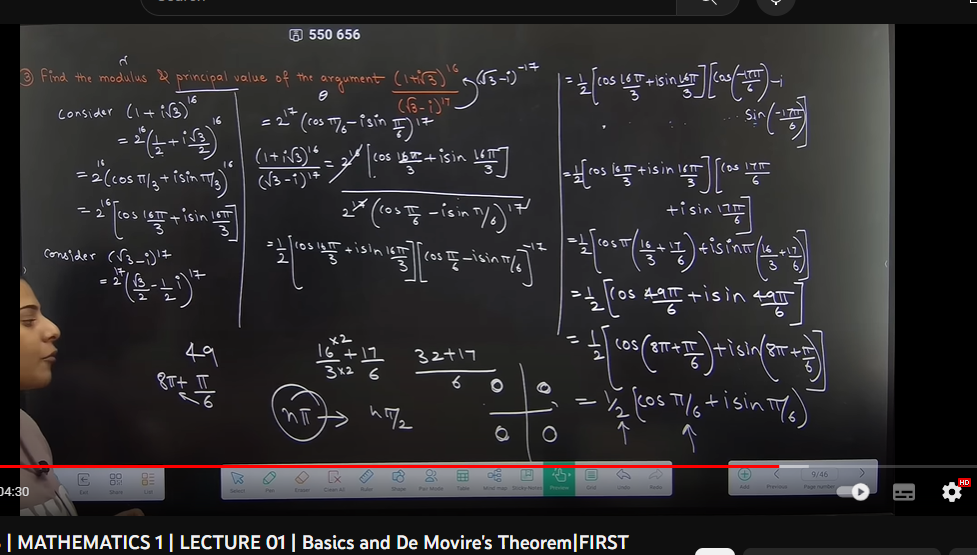 Search
550 656
r
③ Find the modulus & principal value of the argument (1+i√3)^16 / (√3-i)^17
θ
(√3-i)^-17
Consider (1+i√3)^16
= 2^16 (1/2 + i√3/2)^16
= 2^16 (cos π/3 + isin π/3)^16
= 2^16 [cos 16π/3 + isin 16π/3]
Consider (√3-i)^17
= 2^17 (√3/2 - 1/2 i)^17
= 2^17 (cos π/6 - isin π/6)^17
(1+i√3)^16 / (√3-i)^17 = 2^16 [cos 16π/3 + isin 16π/3]
2^17 (cos π/6 - isin π/6)^17
= 1/2 [cos 16π/3 + isin 16π/3] [cos π/6 - isin π/6]^-17
= 1/2 [cos 16π/3 + isin 16π/3] [cos(-17π/6) - i
sin(-17π/6)]
= 1/2 [cos 16π/3 + isin 16π/3] [cos 17π/6
+ isin 17π/6]
= 1/2 [cos π(16/3 + 17/6) + isin π(16/3 + 17/6)]
= 1/2 [cos 49π/6 + isin 49π/6]
= 1/2 [cos(8π + π/6) + isin(8π + π/6)]
= 1/2 (cos π/6 + isin π/6)
49
8π + π/6
16×2/3×2 + 17/6
32+17
6
nπ → nπ/2
0 0
0 0
Exit Share List
Select Pen Eraser Clear All Ruler Shape Pen Mode Table Mind map Sticky Notes Preview Grid Undo Redo
Add Previous 9/46 Next
Page number
04:30
HD
| MATHEMATICS 1 | LECTURE 01 | Basics and De Movire's Theorem|FIRST